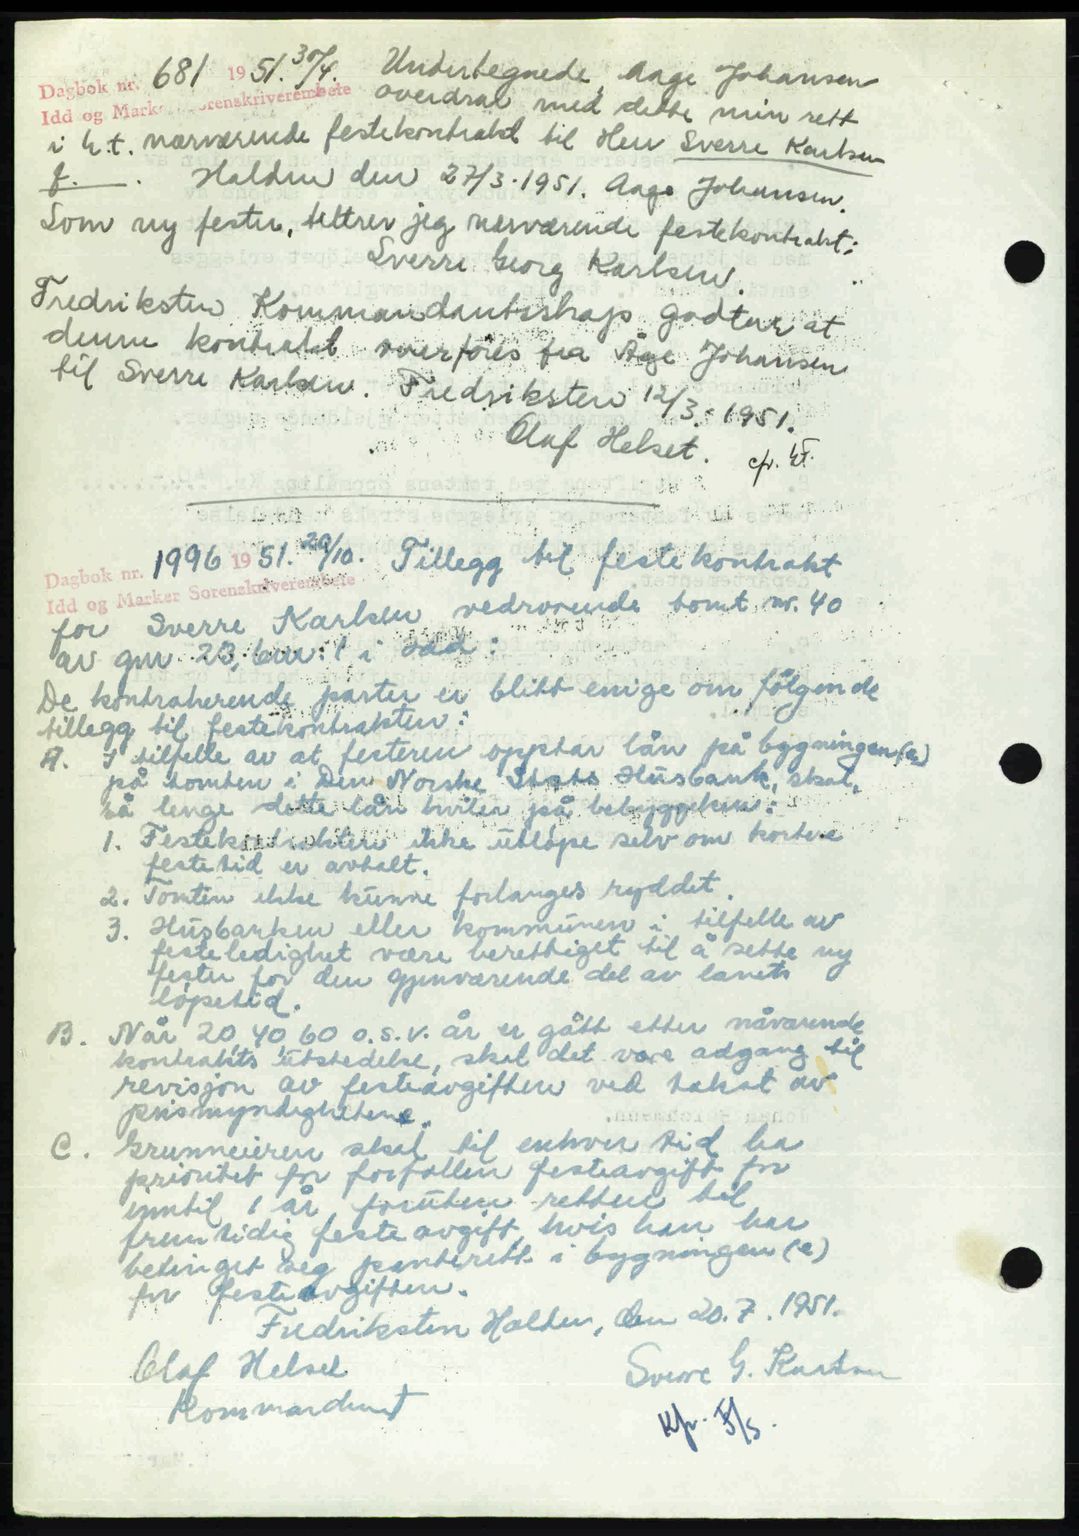 Dagbok nr. 681 1951. 30/4. Undertegnede, Aage Johansen
Idd og Marker Sorenskriverembete overdrar med dette min rett
i h.t. nærværende festekontrakt til Herr Sverre Karlsen
f. . Halden den 27/3.1951. Aage Johansen.
Som ny fester, tiltrer jeg nærværende festekontrakt:
Sverre Georg Karlsen.
Fredriksten Kommandantsskap godtar at
denne kontrakt overføres fra Åge Johansen
til Sverre Karlsen. Fredriksten 12/3. 1951.
Olaf Helset.
cfr.
Dagbok nr. 1996 1951. 29/10. Tillegg til festekontrakt
Idd og Marker Sorenskriverembete
for Sverre Karlsen vedrørende tomt nr. 40
av gnr 23, bnr. 1 i Idd:
De kontraherende parter er blitt enige om følgende
tillegg til festekontrakten:
A. I tilfelle av at festeren opptar lån på bygningen(e)
på tomten i Den Norske Stats Husbank, skal,
så lenge dette lån hviler på bebyggelsen:
1. Festekontrakten ikke utløpe selv om kortere
festetid er avtalt.
2. Tomten ikke kunne forlanges ryddet.
3. Husbanken eller kommunen i tilfelle av
festeledighet være berettiget til å sette ny
fester for den gjenværende del av lånets
løpetid.
B. Når 20 40 60 o.s.v. år er gått etter nåværende
kontrakts utstedelse, skal det være adgang til
revisjon av festeavgiften ved takst av
prismyndighetene.
C. Grunneieren skal til enhver tid ha
prioritet for forfallen festeavgift for
inntil 1 år foruten retten til
fremtidig festeavgift, hvis han har
betinget seg panterett i bygningen(e)
for festeavgiften.
Fredriksten Halden, den 20.7.1951.
Olaf Helset Sverre G. Karlsen
Kommandant
Kfr.